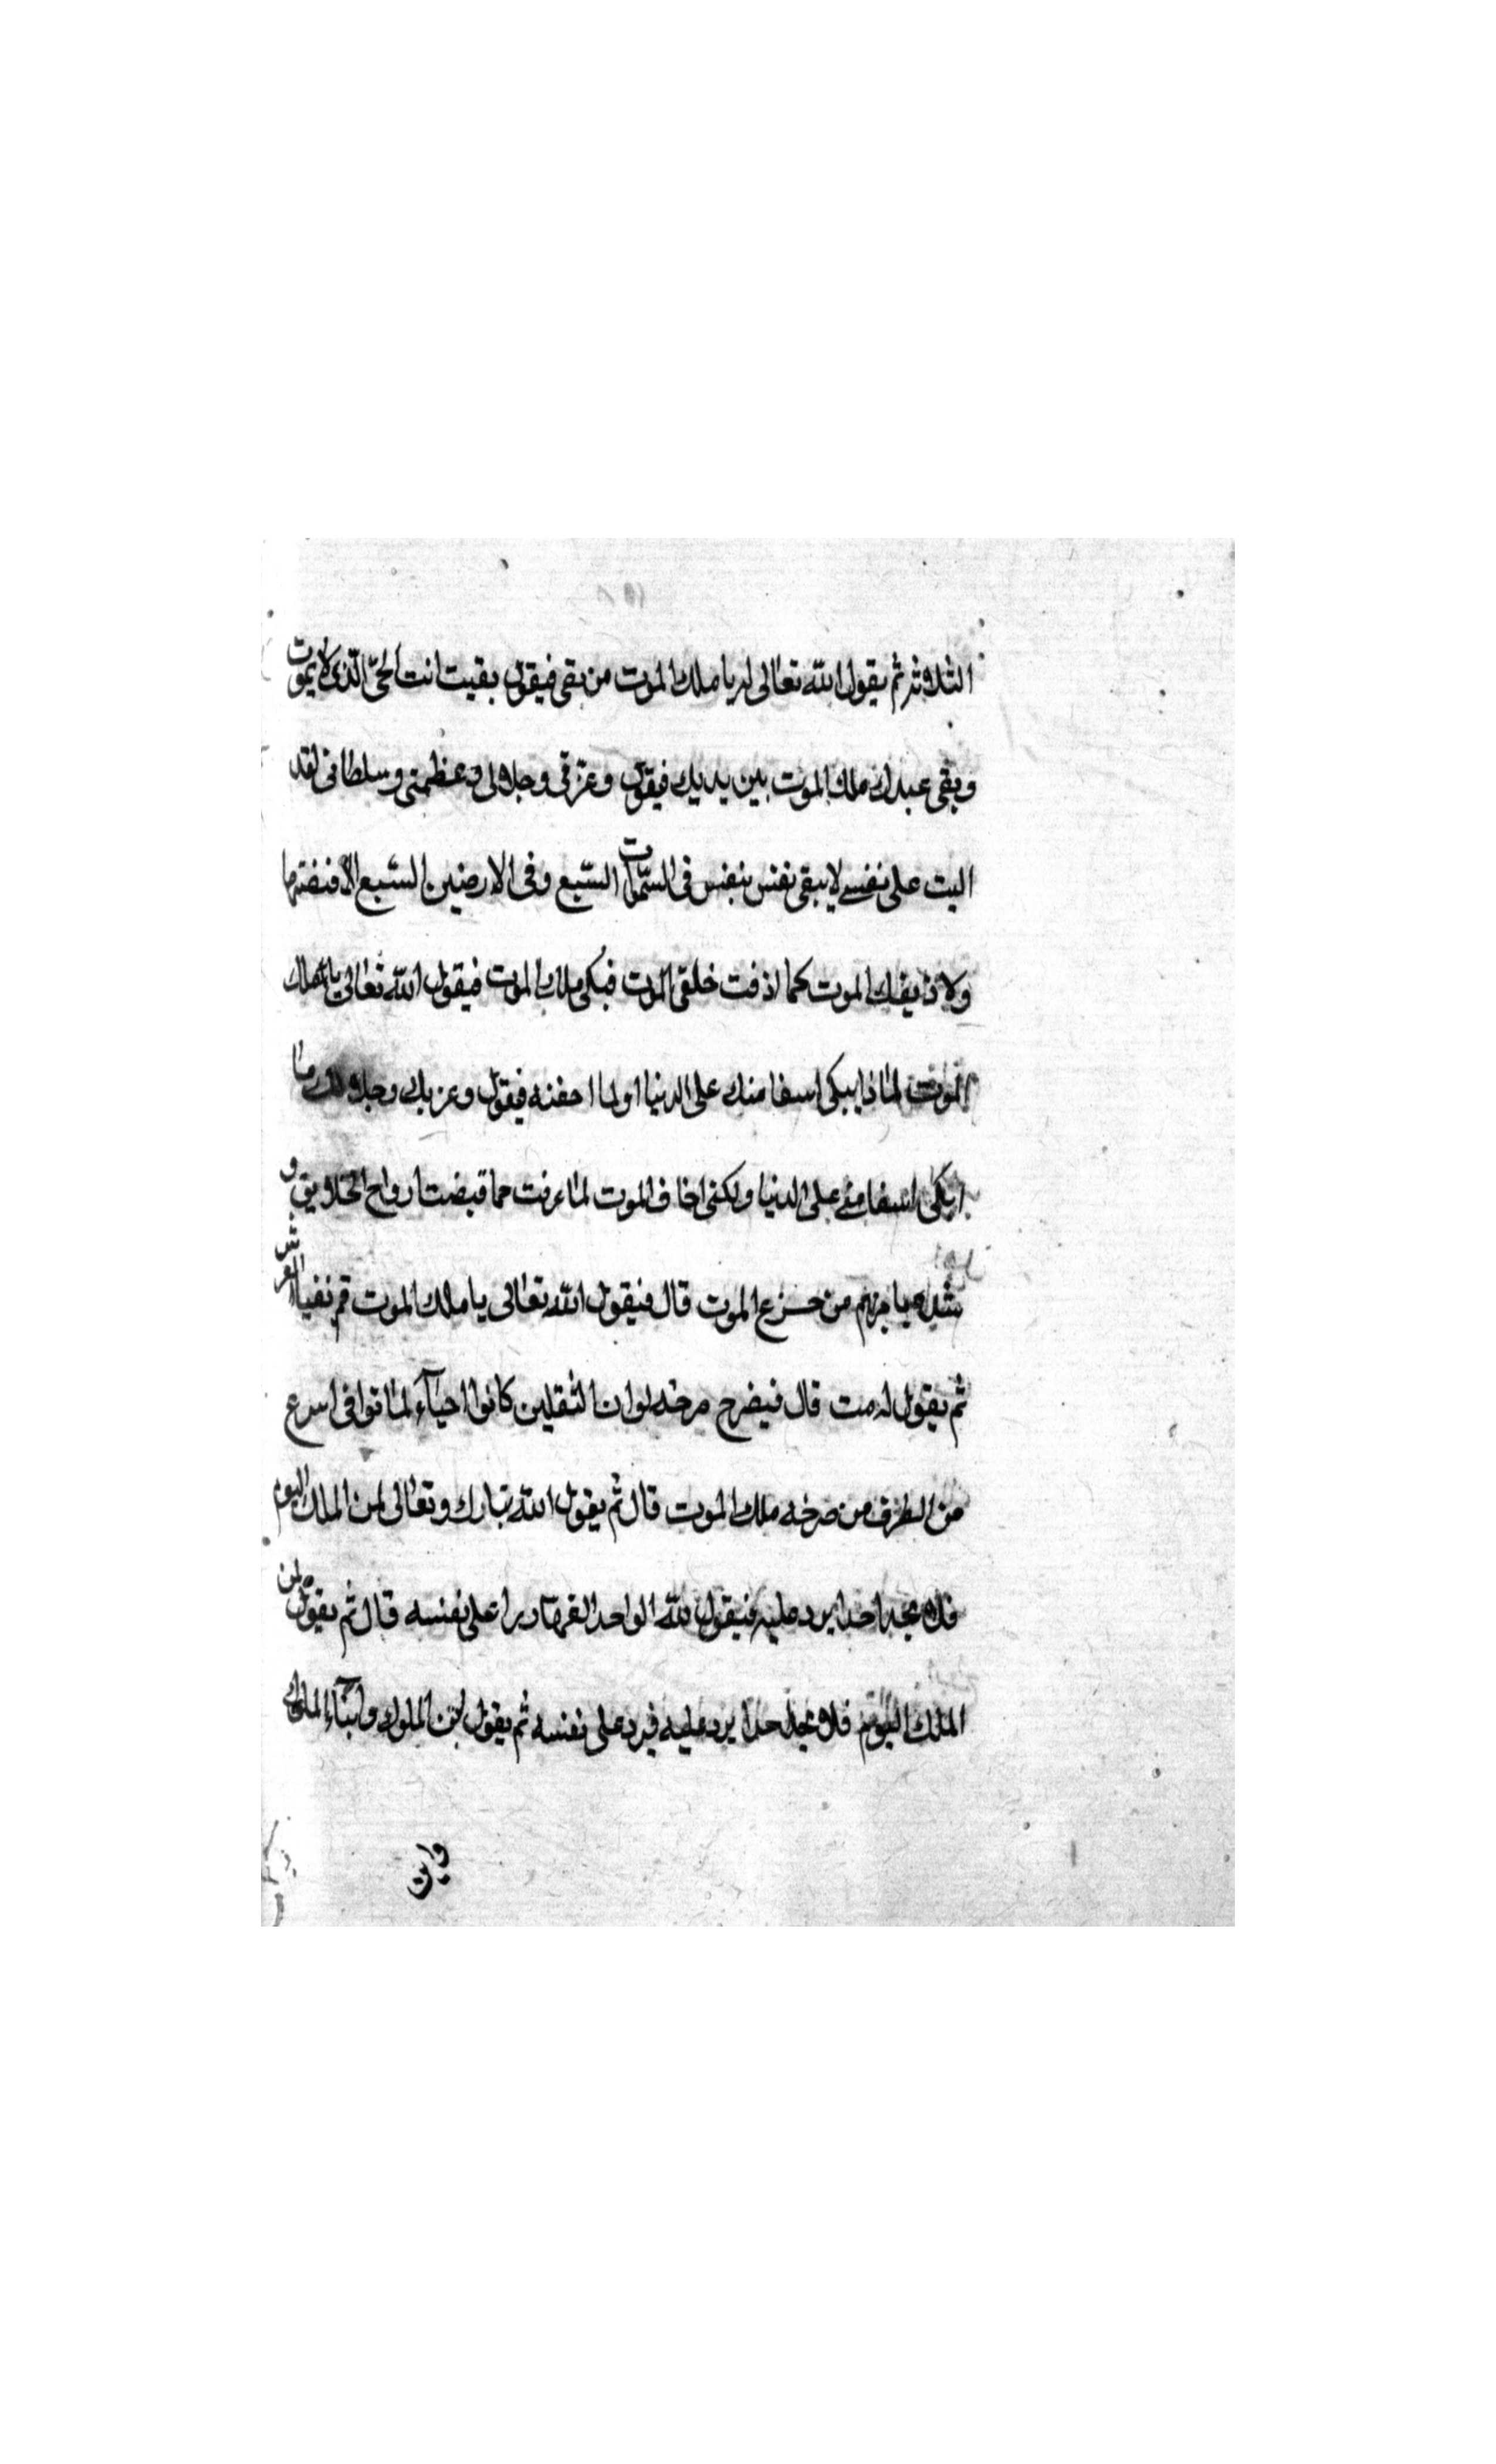 الثلاثه ثم يقول الله تعالى له يا ملك الموت من بقى فيقول بقيت انت الحىّ الّذى لا يموت
وبقى عبدك ملك الموت بين يديك فيقول وعزتى وجلالى وعظمتى وسلطانى لقد
اليت على نفسى لا يبقى نفس بنفس فى السّموات السّبع وفى الارضين السّبع الا
ولا ذيقنك الموت كما اذقت خلقى الموت فبكى ملك الموت فيقول الله تعالى يا ملك
الموت لماذا يبكى اسفا منك على الدنيا او لما فيقول وعزتك وجلالك ما
ابكى اسفا منى على الدنيا ولكنى اخاف الموت لما عرفت حما قبضت ارواح الخلايق و
من جزع الموت قال فيقول الله تعالى يا ملك الموت قم العرش
ثم يقول له مت قال فيصرح صرخه لو ان الثقلين كانوا احياء لماتوا فى اسرع
من الطرف من صرخه ملك الموت قال ثم يقول الله تبارك وتعالى لمن الملك اليوم
فلا يجد احدا يرد عليه فيقول لله الواحد القهار ردا على نفسه قال ثم يقول لمن
الملك اليوم فلا يجد احدا يرد عليه فيرد على نفسه ثم يقول اين الملوك وابنآء الملوك
واين